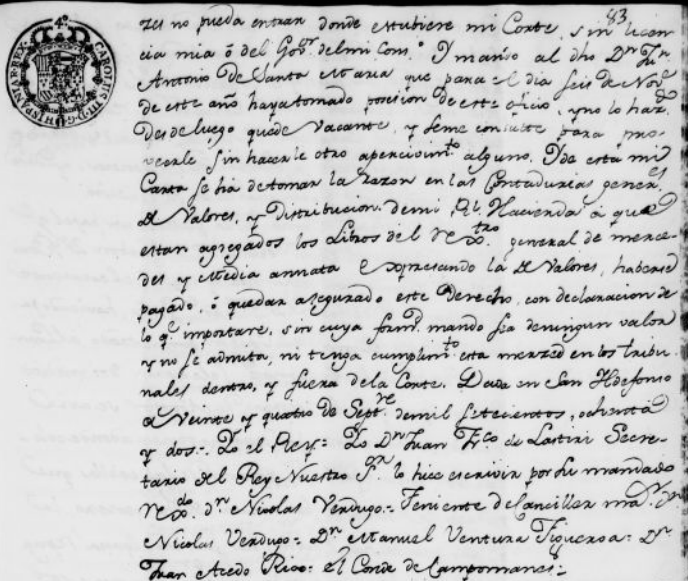 83
4º
CAROLUS III D G HISPANIAR REX
zes no pueda entrar donde estubiere mi Corte, sin licen
cia mia ó del Govor. del mi Conso. Y mando al dho Dn. Jn.
Antonio de Santa Maria que para el dia seis de Nove
de este año haya tomado posesion de este oficio, y no lo haz
desde luego quede Vacante, y seme consulte para pro
veerle sin hacerle otro apercivimto. alguno. Y de esta mi
Carta se ha de tomar la razon en las Contadurias generes.
de Valores, y Distribucion de mi Rl. Hacienda á que
estan agregados los Libros del rextro. general de merce
des y Media annata expresando la de Valores, haberse
pagado, ó quedar asegurado este Derecho, con declaracion de
lo qe. importare, sin cuya formd. mando sea deningun valor
y no se admita, ni tenga cumplimto. esta merzed en los tribu
nales dentro, y fuera dela Corte. Dada en San Ildefonso
a Veinte y quatro de Septre. demil setecientos, ochenta
y dos.. Yo el Rey.. Yo Dn. Juan Frco. de Lastiri Secre
tario del Rey Nuestro Sr. lo hice escrivir por su mandado
rexdo. dn. Nicolas Verdugo.. Teniente de Canciller mar. Dn.
Nicolas Verdugo.. Dn. Manuel Ventura Figueroa.. Dn.
Juan Acedo Rico.. el Conde de Campomanes..